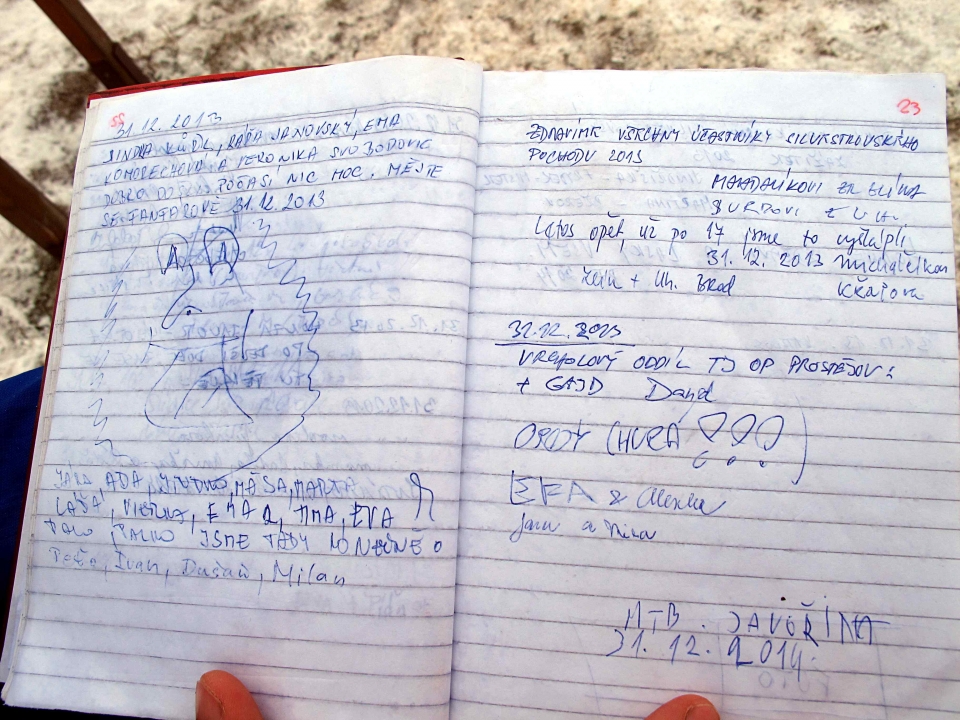 55
31.12.2013
JINDRA KUDR, RÁĎA JANOVSKÝ, EMA
KOMORECHOVÁ A VERONIKA SVOBODOVIC
POČASÍ NIC MOC. MĚJTE
SE FANTAROVĚ 31.12.2013
A A
JARO ADA, MÁŠA, MARTA
LAĎA, VIERKA, EMA 2, EMA, EVA
PALO, PALKO JSME TADY KONEČNĚ
Peťo, Ivan, Dušan, Milan
23
ZDRAVÍME VŠECHNY ÚČASTNÍKY SILVESTROVSKÉHO
POCHODU 2013
ZE ZLÍNA
BURDOVI Z U.H.
Letos opět už po 17 jsme to vyšlápli
31.12.2013
Zlín + Uh. Brod
31.12.2013
VRCHOLOVÝ ODDÍL TJ OP PROSTĚJOV:
+ GAJD David
OPĚT (HURÁ ???)
EFA &
Jara a Nina
MTB. JAVOŘINA
31.12.2014.